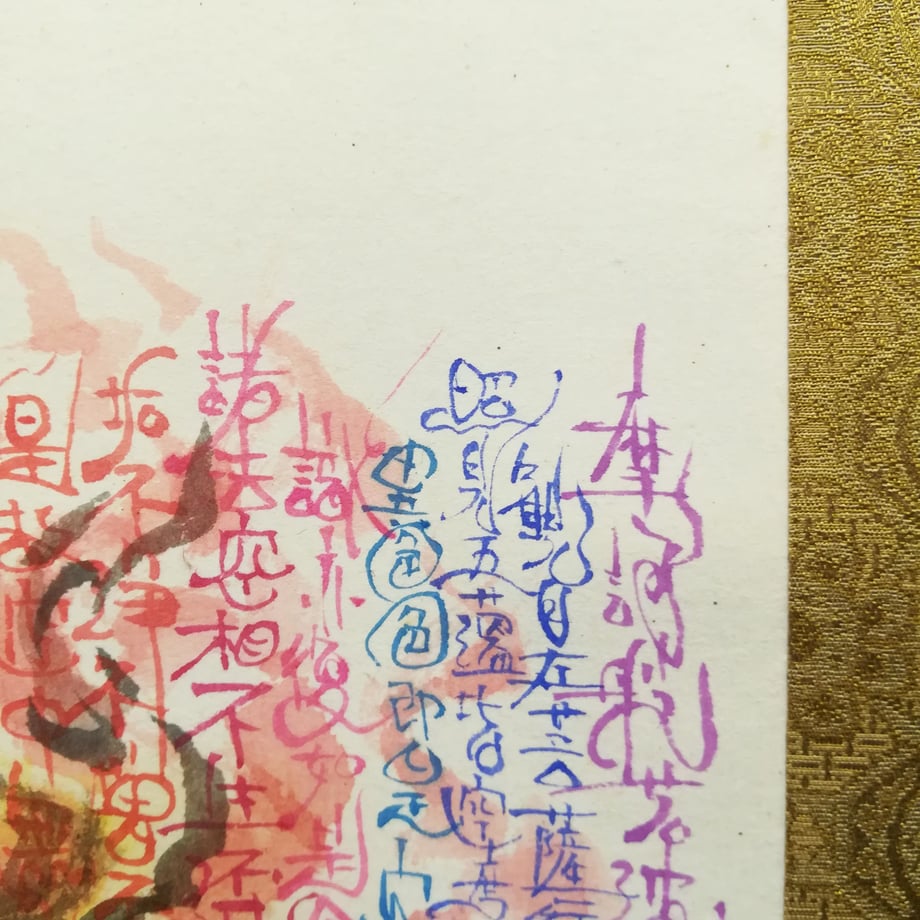 摩訶般若波
觀自在菩薩行
照見五蘊皆空度
異色色即是空
識亦復如是
諸法空相不生不
垢不淨不增不
是故空中無